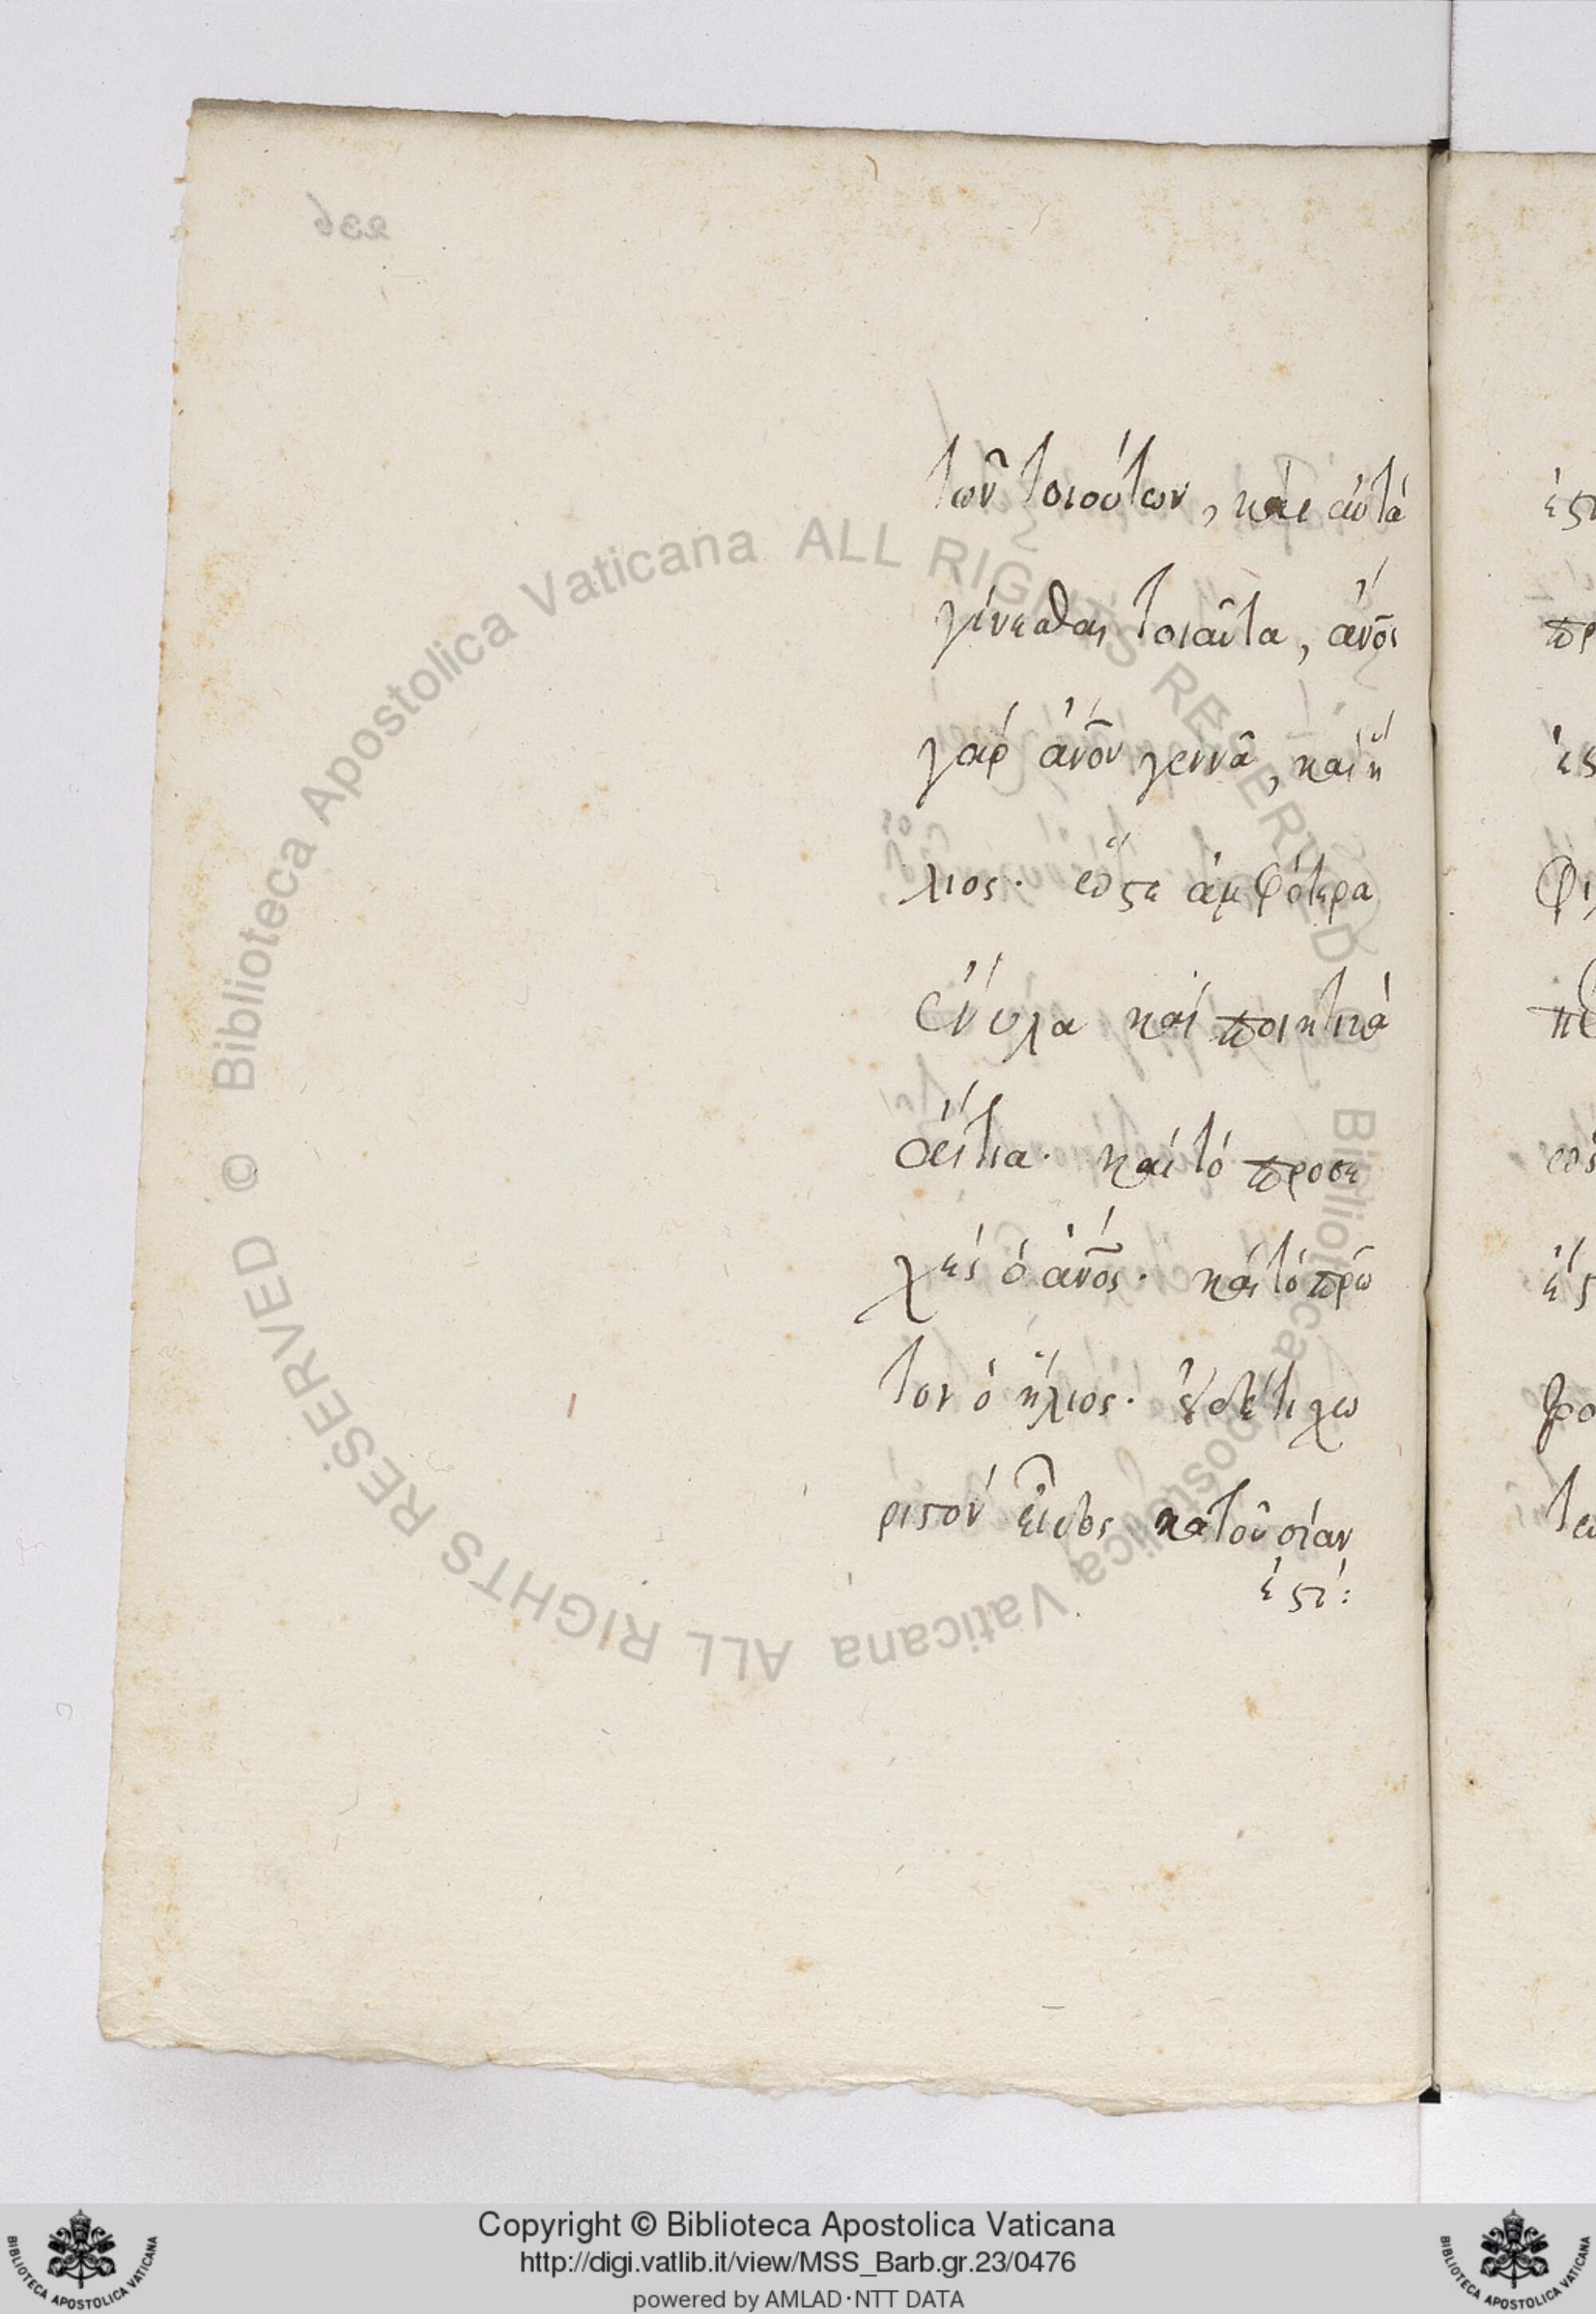 236
τῶν τοιούτων, καὶ αὐτὰ
γίνεσθαι τοιαῦτα, ἄνος
γὰρ ἄνον γεννᾶ, καὶ ἥ
λιος. ὥστε ἀμφότερα
ἔνυλα καὶ ποιητικὰ
αἴτια. καὶ τὸ προσε
χὲς ὁ ἄνος. καὶ τὸ πρῶ
τον ὁ ἥλιος. οὐδέτι χω
ριστὸν εἶδος κατουσίαν
ἐστί:
© Biblioteca Apostolica Vaticana ALL RIGHTS RESERVED
© Biblioteca Apostolica Vaticana ALL RIGHTS RESERVED
Copyright © Biblioteca Apostolica Vaticana
http://digi.vatlib.it/view/MSS_Barb.gr.23/0476
powered by AMLAD·NTT DATA
BIBLIOTECA APOSTOLICA VATICANA
BIBLIOTECA APOSTOLICA VATICANA